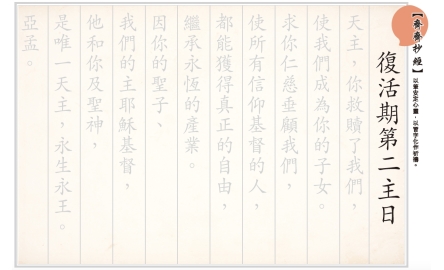 【齊齊抄經】以筆安定心靈，以書字化作祈禱。
復活期第二主日
天主，你救贖了我們，
使我們成為你的子女。
求你仁慈垂顧我們，
使所有信仰基督的人，
都能獲得真正的自由，
繼承永恆的產業。
因你的聖子、
我們的主耶穌基督，
他和你及聖神，
是唯一天主，永生永王。
亞孟。